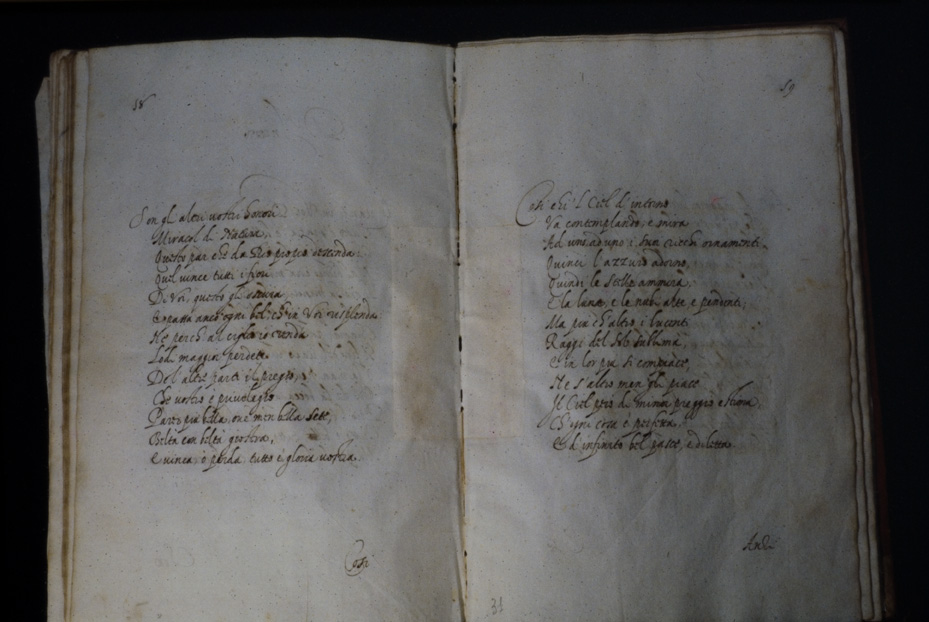 58
Son gl'altri vostri honori
Miracol di Natura,
Questo par che da Dio proprio descenda.
Quel vince tutti i fiori
Di voi, questo gl'oscura,
E passa anco ogni bel, ch'in Voi risplenda
Ne perch'al ciglio io renda
Lodi maggior perdete
De l'altre parti il pregio,
Che vostro è privilegio
Parer più bella, ove men bella sete,
Beltà con beltà giostra,
E vinca, o perda, tutto è gloria vostra.
Cosi
59
Cosi chi'l Ciel d'intorno
Va contemplando, e mira
Ad uno ad uno i suoi ricchi ornamenti.
Quinci l'azzurro adorno,
Quindi le stelle ammira,
E la luna, e le nubi alte e pendenti,
Ma più ch'altro i lucenti
Raggi del Sol sublima,
E in lor più si compiace,
Ne s'altro men gli piace
Il Ciel però di minor preggio estima,
Ch'ogni cosa è perfetta,
Ed infinito bel pasce, e diletta.
31